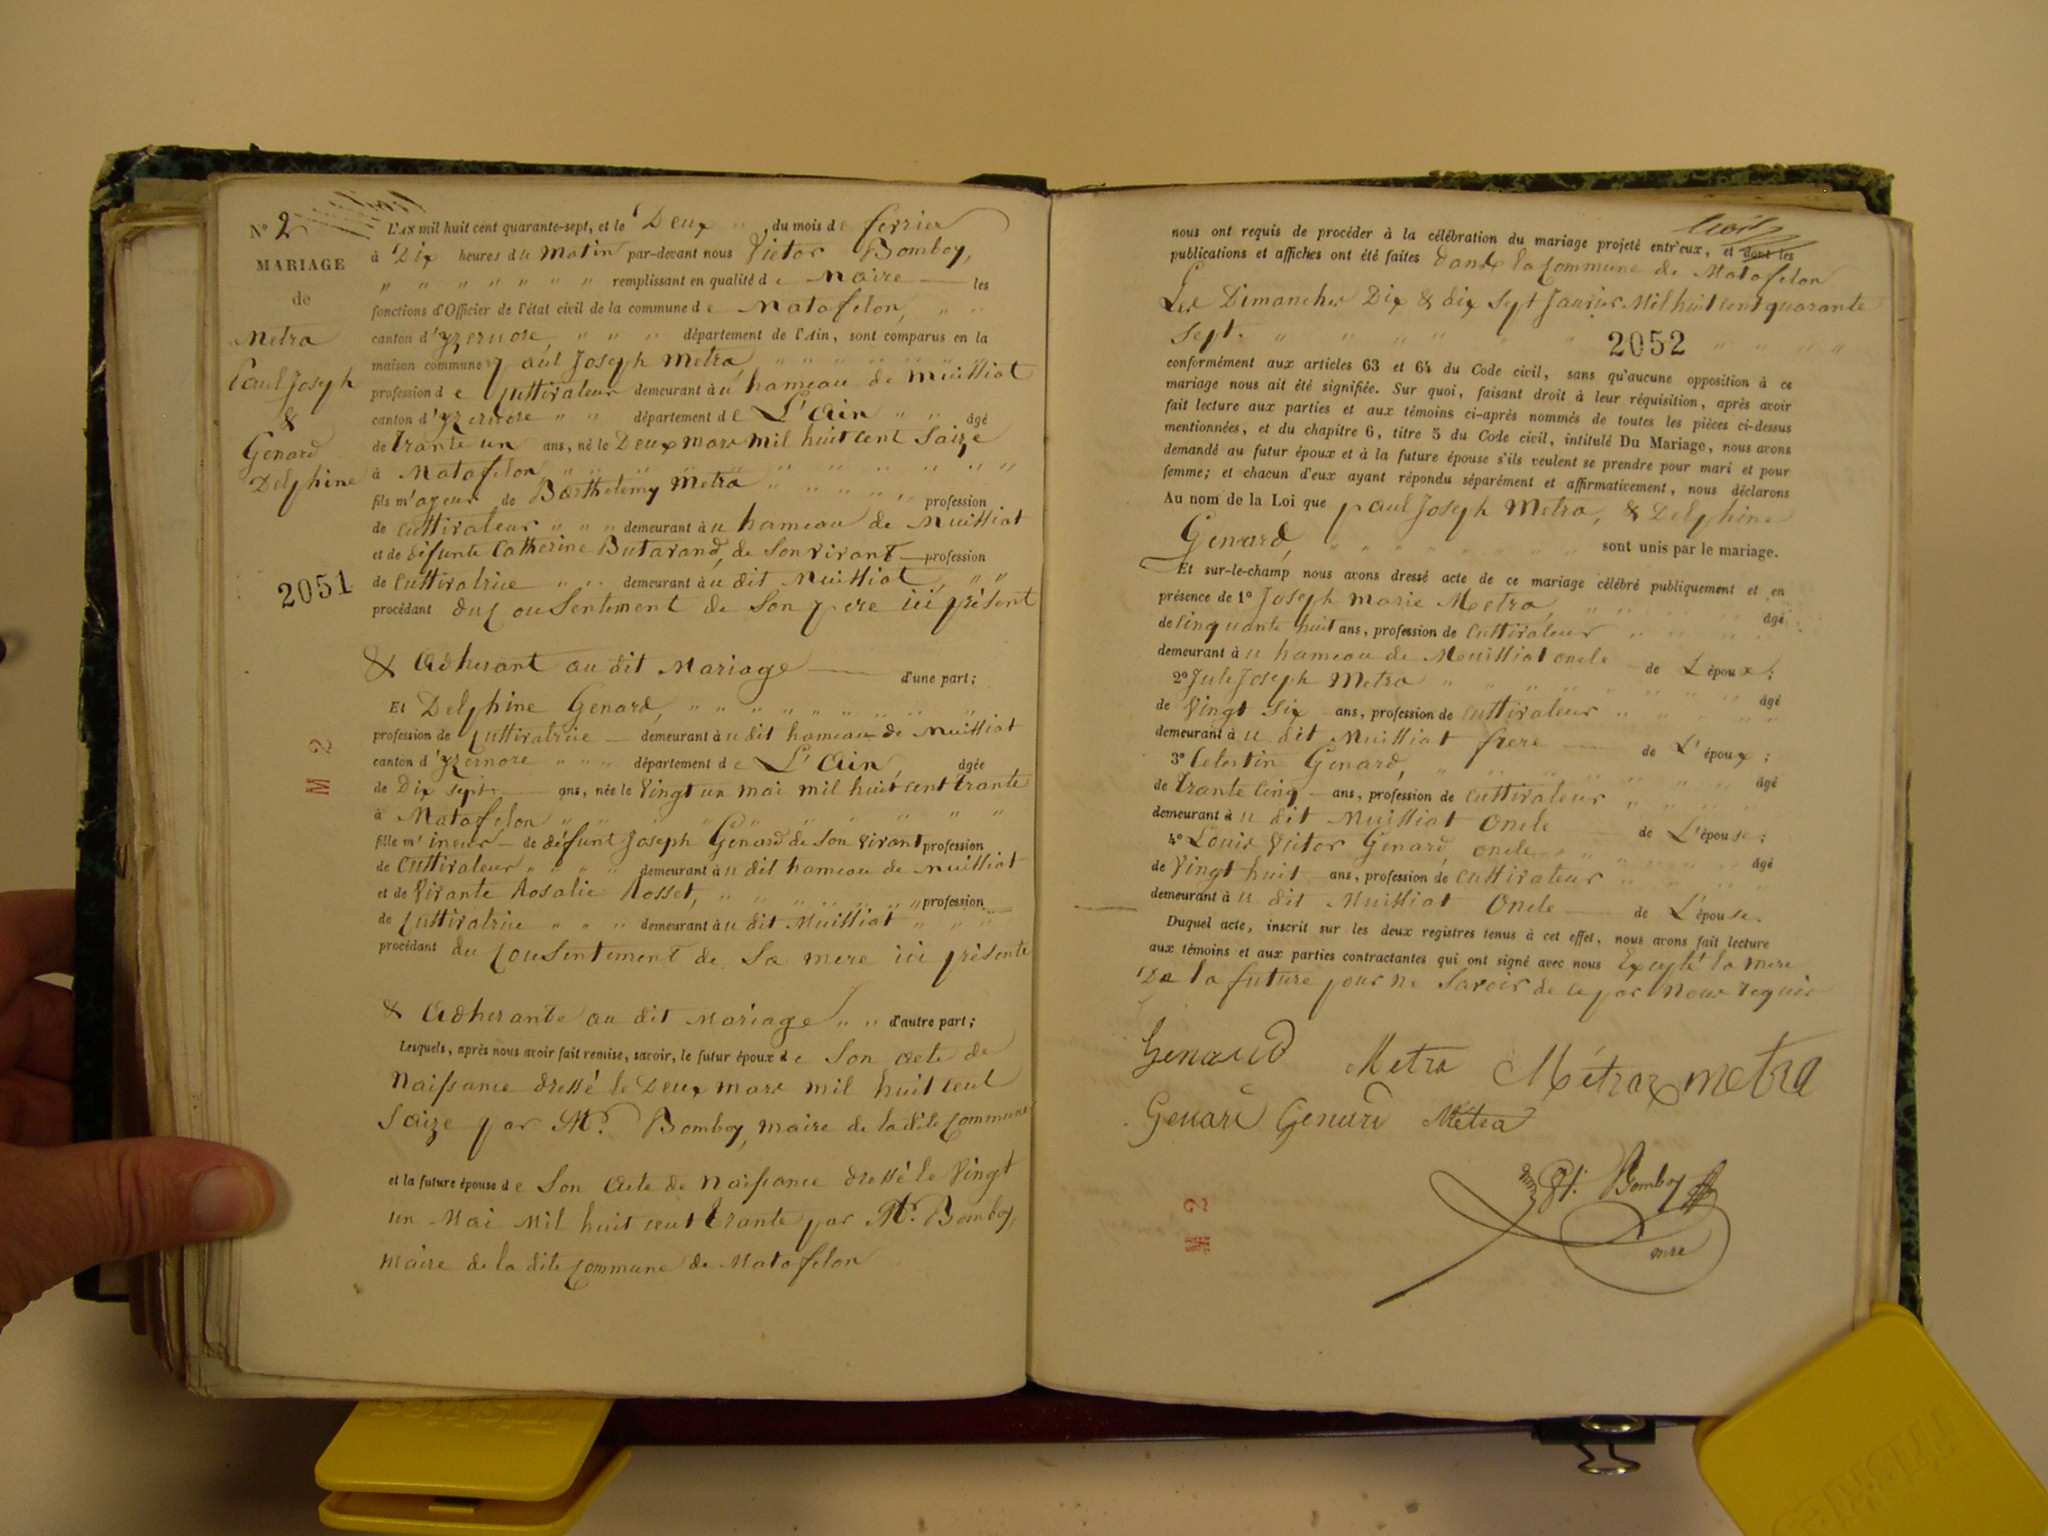 N° 2
MARIAGE
de
Metra
Paul Joseph
&
Genard
Delphine
2051
M 2
L'an mil huit cent quarante-sept, et le Deux " du mois de fevrier
à Dix heures du Matin par-devant nous Victor Bomboy,
" " " " " " " remplissant en qualité de Maire — les
fonctions d'Officier de l'état civil de la commune de Matafelon, " "
canton d'yzernore, " " " département de l'Ain, sont comparus en la
maison commune paul Joseph Metra, " " " " " "
profession de Cultivateur demeurant à u hameau de Muilliat
canton d'yzernore " " département de L'Ain " " âgé
de trante un ans, né le Deux mars mil huit cent Saize
à Matafelon " " " " " " " " " " "
fils m'ageur de Barthelemy Metra " " " " " profession
de cultivateur " " " demeurant à u hameau de Muilliat
et de défunte Catherine Butavand, de Son vivant — profession
de Cultivatrice " " " demeurant à u dit Muilliat, " "
procédant du Consentement de Son pere ici présent
& Adherant au dit Mariage — d'une part;
Et Delphine Genard, " " " " " " " "
profession de Cultivatrice — demeurant à u dit hameau de Muilliat
canton d'yzernore " " " département de L'Ain, âgée
de Dix sept — ans, née le Vingt un mai mil huit cent trante
à Matafelon " " " " " " " " "
fille m'ineur — de défunt Joseph Genard de Son vivant profession
de Cultivateur " " " " demeurant à u dit hameau de Muilliat
et de Vivante Rosalie Rosset, " " " " " " " profession —
de Cultivatrice " " " demeurant à u dit Muilliat " " "
procédant du Consentement de Sa mere ici présente
& Adherante au dit Mariage " " d'autre part;
Lesquels, après nous avoir fait remise, savoir, le futur époux de Son acte de
Naissance dressé le Deux mars mil huit cent
Saize par Mr. Bomboy, maire de la dite Commune
et la future épouse de Son acte de Naissance dressé le Vingt
un Mai Mil huit cent trante par Mr. Bomboy,
Maire de la dite Commune de Matafelon
nous ont requis de procéder à la célébration du mariage projeté entr'eux, et dont les
publications et affiches ont été faites Dans la Commune de Matafelon
Les Dimanches Dix & dix Sept Janvier Mil huit cent quarante
Sept. " " " " " " " " " "
2052
conformément aux articles 63 et 64 du Code civil, sans qu'aucune opposition à ce
mariage nous ait été signifiée. Sur quoi, faisant droit à leur réquisition, après avoir
fait lecture aux parties et aux témoins ci-après nommés de toutes les pièces ci-dessus
mentionnées, et du chapitre 6, titre 5 du Code civil, intitulé Du Mariage, nous avons
demandé au futur époux et à la future épouse s'ils veulent se prendre pour mari et pour
femme; et chacun d'eux ayant répondu séparément et affirmativement, nous déclarons
Au nom de la Loi que paul Joseph Metra, & Delphine
Genard, " " " " " " " " sont unis par le mariage.
Et sur-le-champ nous avons dressé acte de ce mariage célébré publiquement et en
présence de 1° Joseph Marie Metra, " " " " " âgé
de Cinquante huit ans, profession de Cultivateur " " " "
demeurant à u hameau de Mouilliat oncle — de L'époux;
2° Jule Joseph Metra " " " " " " " " âgé
de Vingt Six — ans, profession de cultivateur " " " "
demeurant à u dit Muilliat frere — de L'époux;
3° Celestin Genard, " " " " " " " âgé
de trante Cinq — ans, profession de cultivateur " " " "
demeurant à u dit Muilliat Oncle — de L'épouse;
4° Louis Victor Genard, oncle " " " " " âgé
de Vingt huit ans, profession de cultivateur " " " "
demeurant à u dit Muilliat Oncle — de L'épouse.
Duquel acte, inscrit sur les deux registres tenus à cet effet, nous avons fait lecture
aux témoins et aux parties contractantes qui ont signé avec nous Excepté la mere
De la future pour ne Savoir de ce par Nous requis
Genard Metra Métra metra
Genard Genard Metra
Bomboy
mre
M 2